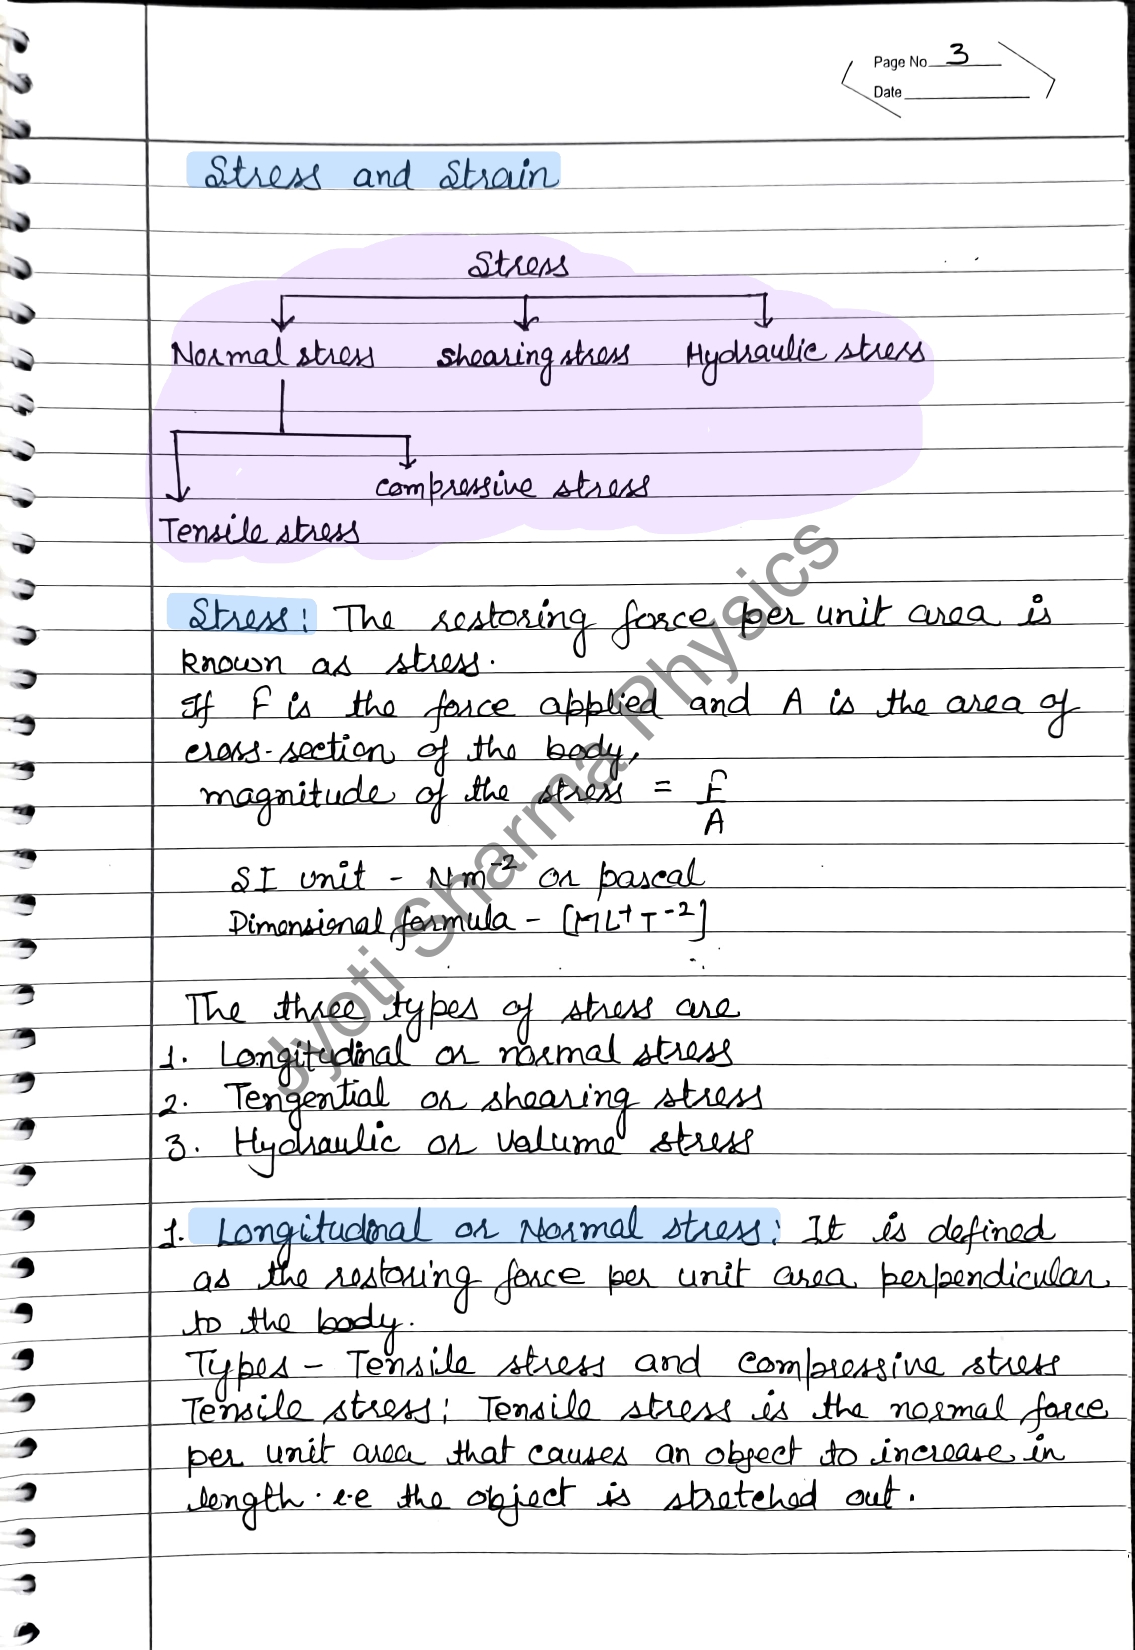 Page No. 3
Date
Stress and Strain
Stress
Normal stress shearing stress Hydraulic stress
compressive stress
Tensile stress
Stress: The restoring force per unit area is
known as stress.
If F is the force applied and A is the area of
cross-section of the body,
magnitude of the stress = F/A
SI unit - Nm⁻² or pascal
Dimensional formula - [ML⁻¹T⁻²]
The three types of stress are
1. Longitudinal or normal stress
2. Tengential or shearing stress
3. Hydraulic or volume stress
1. Longitudinal or Normal stress: It is defined
as the restoring force per unit area perpendicular
to the body.
Types - Tensile stress and compressive stress
Tensile stress: Tensile stress is the normal force
per unit area that causes an object to increase in
length. i.e the object is stretched out.
Jyoti Sharma Physics